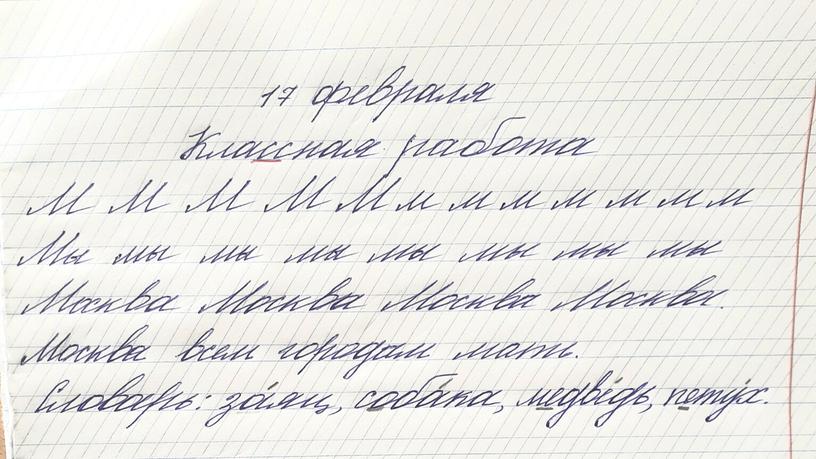 17 февраля
Классная работа
М М М М М м м м м м м м
Мы мы мы мы мы мы мы мы
Москва Москва Москва Москва.
Москва всем городам мать.
Словарь: за́яц, соба́ка, медве́дь, пету́х.